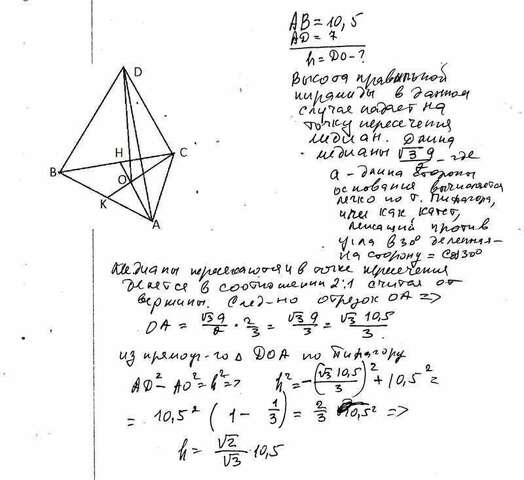 AB = 10,5
AD = 7
h = DO - ?
Высота правильной
пирамиды в данном
случае падает на
точку пересечения
медиан. Длина
медианы √3 a/2, где
a - длина стороны
основания вычисляется
легко по т. Пифагора,
или как катет,
лежащий против
угла в 30° деленная
на сторону = cos30°
D
H
C
B
O
K
A
Медианы пересекаются и в точке пересечения
делятся в соотношении 2:1 считая от
вершины. След-но отрезок OA =>
OA = √3 a/2 · 2/3 = √3 a/3 = √3 10,5/3
из прямоуг-го Δ DOA по Пифагору
AD² - AO² = h² => h² = -(√3 10,5/3)² + 10,5² =
= 10,5² (1 - 1/3) = 2/3 10,5² =>
h = √2/√3 · 10,5